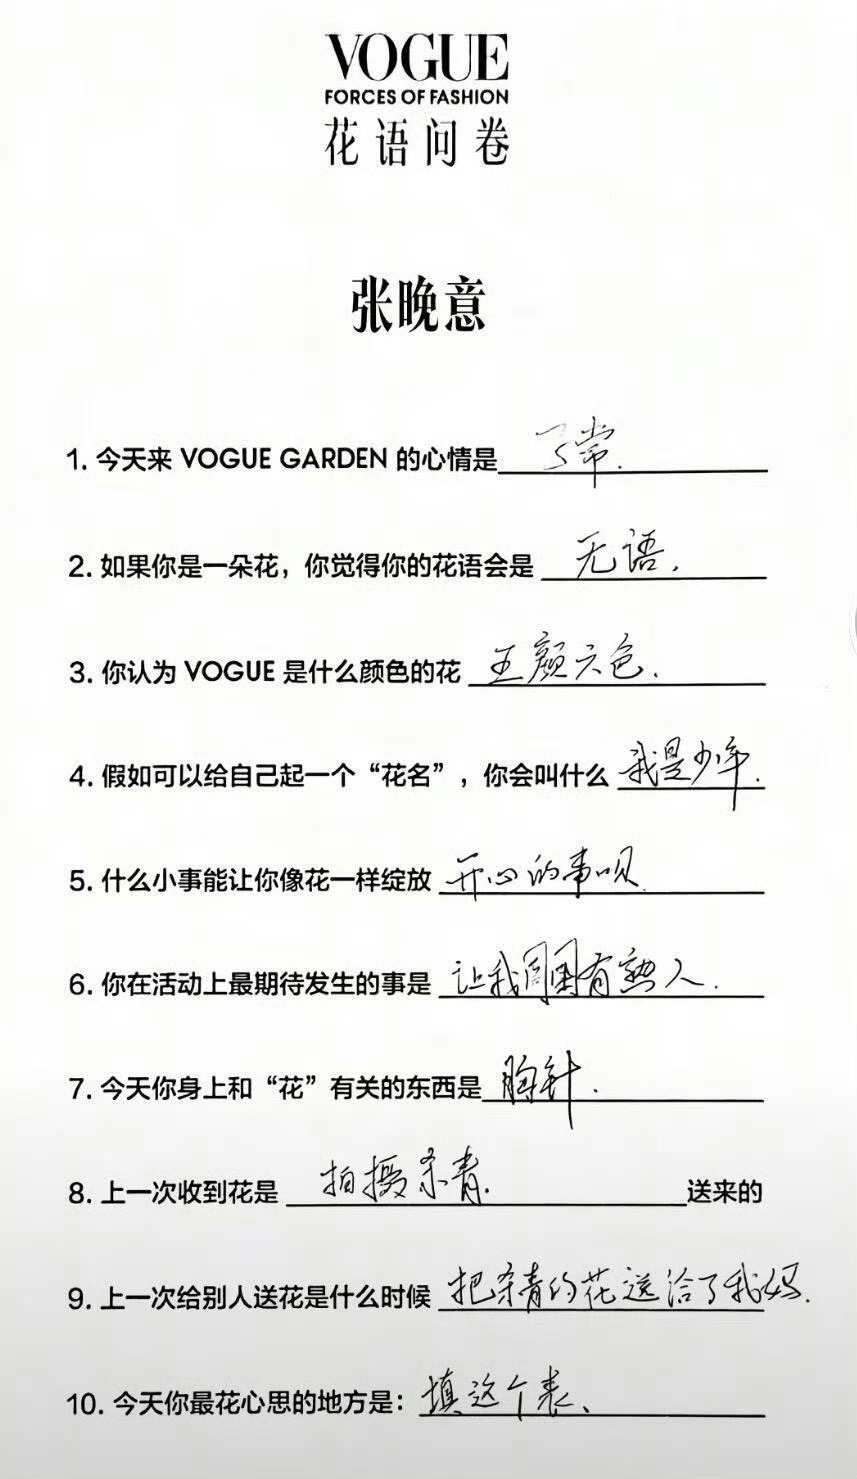 VOGUE
FORCES OF FASHION
花语问卷
张晚意
1. 今天来 VOGUE GARDEN 的心情是 常.
2. 如果你是一朵花，你觉得你的花语会是 无语.
3. 你认为 VOGUE 是什么颜色的花 五颜六色.
4. 假如可以给自己起一个“花名”，你会叫什么 我是少年.
5. 什么小事能让你像花一样绽放 开心的事呗.
6. 你在活动上最期待发生的事是 让我周围有熟人.
7. 今天你身上和“花”有关的东西是 胸针.
8. 上一次收到花是 拍摄杀青. 送来的
9. 上一次给别人送花是什么时候 把杀青的花送给了我妈.
10. 今天你最花心思的地方是： 填这个表、